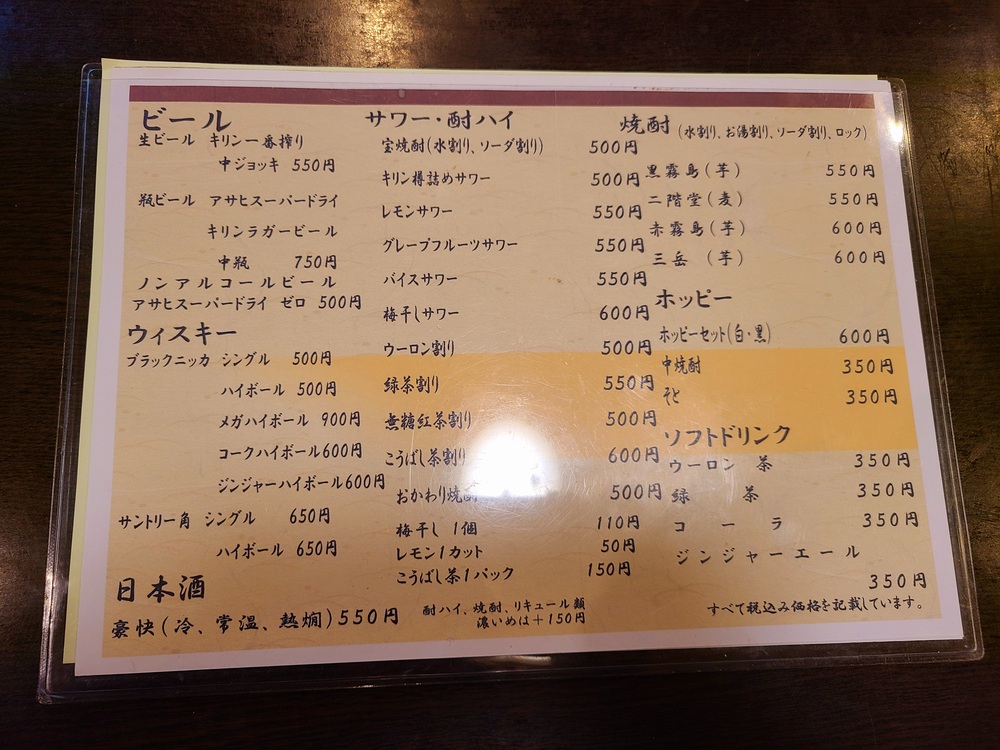 ビール
生ビール キリン一番搾り
中ジョッキ 550円
瓶ビール アサヒスーパードライ
キリンラガービール
中瓶 750円
ノンアルコールビール
アサヒスーパードライ ゼロ 500円
ウィスキー
ブラックニッカ シングル 500円
ハイボール 500円
メガハイボール 900円
コークハイボール 600円
ジンジャーハイボール 600円
サントリー角 シングル 650円
ハイボール 650円
日本酒
豪快(冷、常温、熱燗) 550円
サワー・酎ハイ
宝焼酎(水割り、ソーダ割り) 500円
キリン樽詰めサワー 500円
レモンサワー 550円
グレープフルーツサワー 550円
バイスサワー 550円
梅干しサワー 600円
ウーロン割り 500円
緑茶割り 550円
無糖紅茶割り 500円
こうばし茶割り 600円
おかわり焼酎 500円
梅干し 1個 110円
レモン1カット 50円
こうばし茶1パック 150円
酎ハイ、焼酎、リキュール類
濃いめは+150円
焼酎 (水割り、お湯割り、ソーダ割り、ロック)
黒霧島(芋) 550円
二階堂(麦) 550円
赤霧島(芋) 600円
三岳 (芋) 600円
ホッピー
ホッピーセット(白・黒) 600円
中焼酎 350円
そと 350円
ソフトドリンク
ウーロン 茶 350円
緑 茶 350円
コーラ 350円
ジンジャーエール
350円
すべて税込み価格を記載しています。